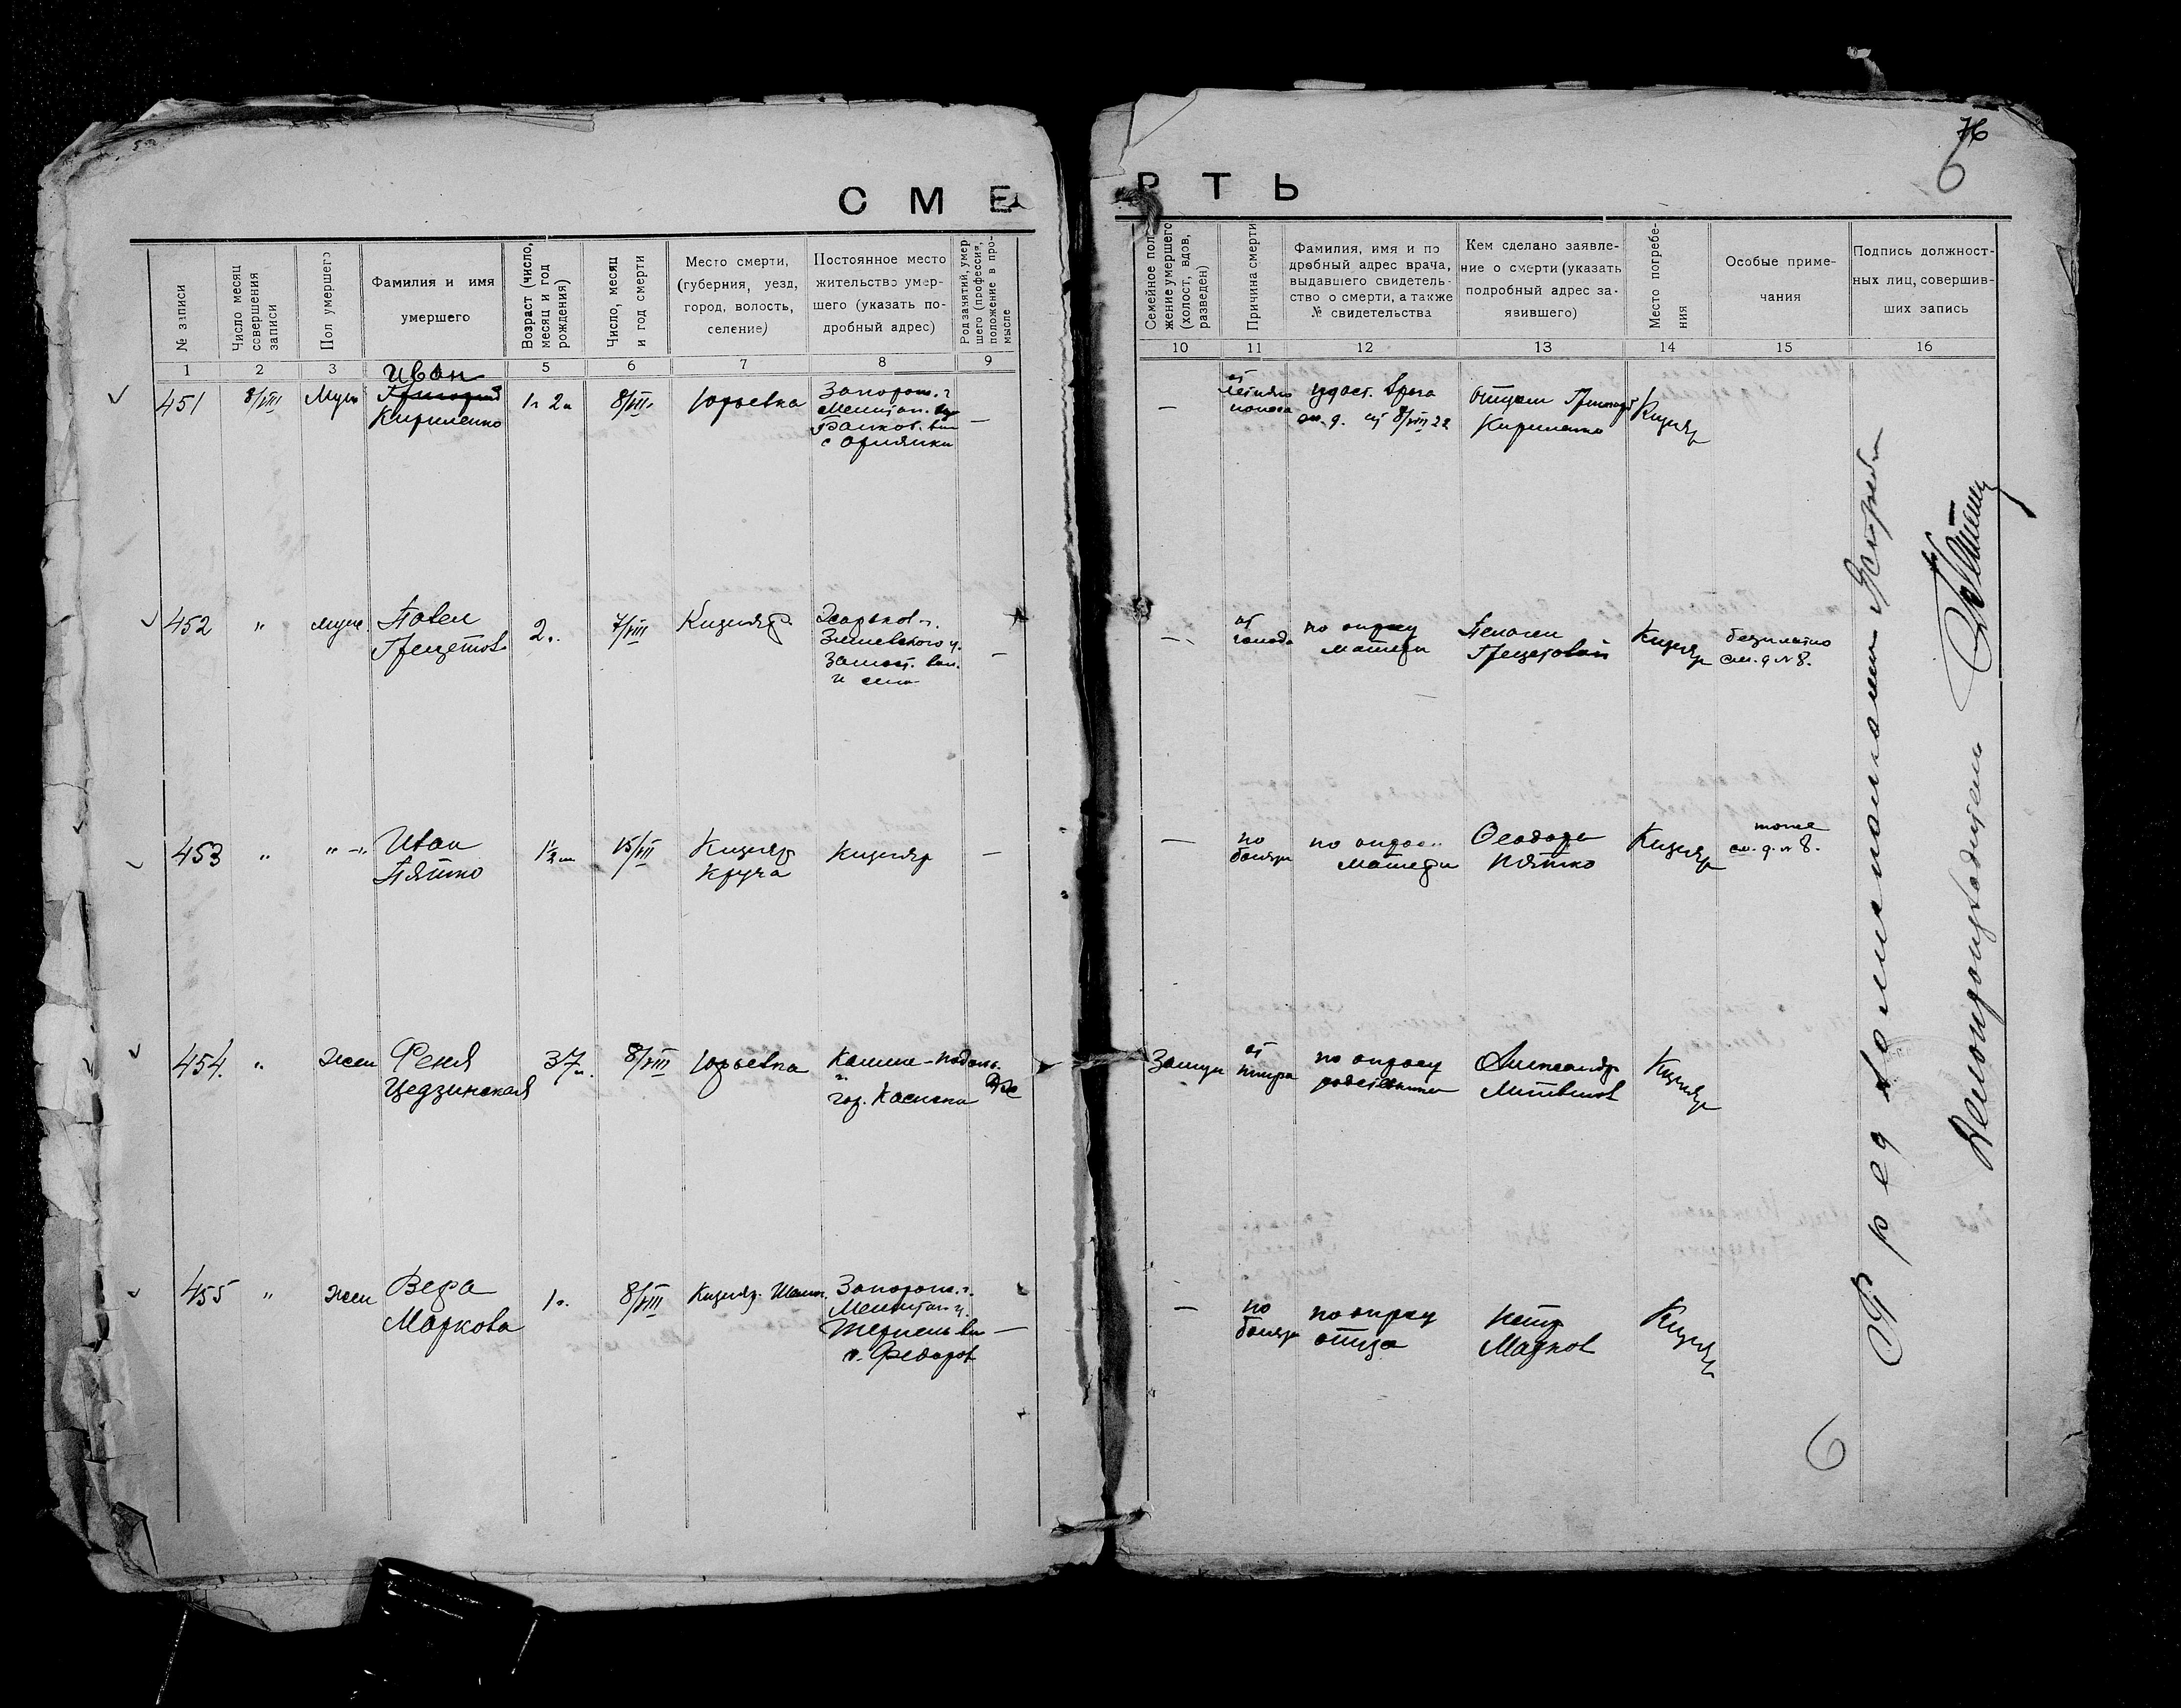 76
6
СМЕРТЬ
№ записи
Число месяц совершения записи
Пол умершего
Фамилия и имя умершего
Возраст (число, месяц и год рождения)
Число, месяц и год смерти
Место смерти, (губерния, уезд, город, волость, селение)
Постоянное место жительство умершего (указать подробный адрес)
Род занятий, умершего (профессия, положение в промысле
Семейное положение умершего (холост, вдов, разведен)
Причина смерти
Фамилия, имя и подробный адрес врача, выдавшего свидетельство о смерти, а также № свидетельства
Кем сделано заявление о смерти (указать подробный адрес заявившего)
Место погребения
Особые примечания
Подпись должностных лиц, совершивших запись
1 2 3 5 6 7 8 9 10 11 12 13 14 15 16
Иван
451 8/VIII Муж Григорий 1 г 2 м 8/VIII Юрьевка Запорож. г
Кириленко Мелитоп. у
— удост. врача отцом Григорий Кизияр
от 8/VIII 22 Кириленко
452 " муж. Павел 2 г. 7/VIII Кизияр Харьков г.
Змиевского у.
— от голода по опросу матери Пелагеи Кизияр бесплатно
см. д. № 8.
453 " " Иван Пятко 1½ м 15/VII Кизияр Круча Кизияр —
— по болезни по опросу матери Феодора Пятко Кизияр тоже
см. д. № 8.
454. " жен Феня Цедзинская 37 л. 8/VIII Юрьевка Камен-Подоль.
гор.
Замуж от тифа по опросу Александр Литвинов Кизияр
455 " жен Вера Маркова 1 г. 8/VIII Кизияр. Запорож. г.
Мелитоп у.
Федоров —
— по болезни по опросу отца Петр Марков Кизияр
Делопроизводитель
6